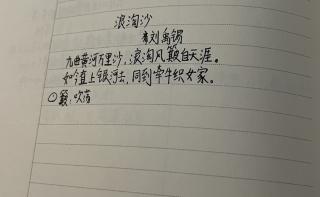 浪淘沙
唐刘禹锡
九曲黄河万里沙,浪淘风簸自天涯。
如今直上银河去,同到牵牛织女家。
①簸:吹荡